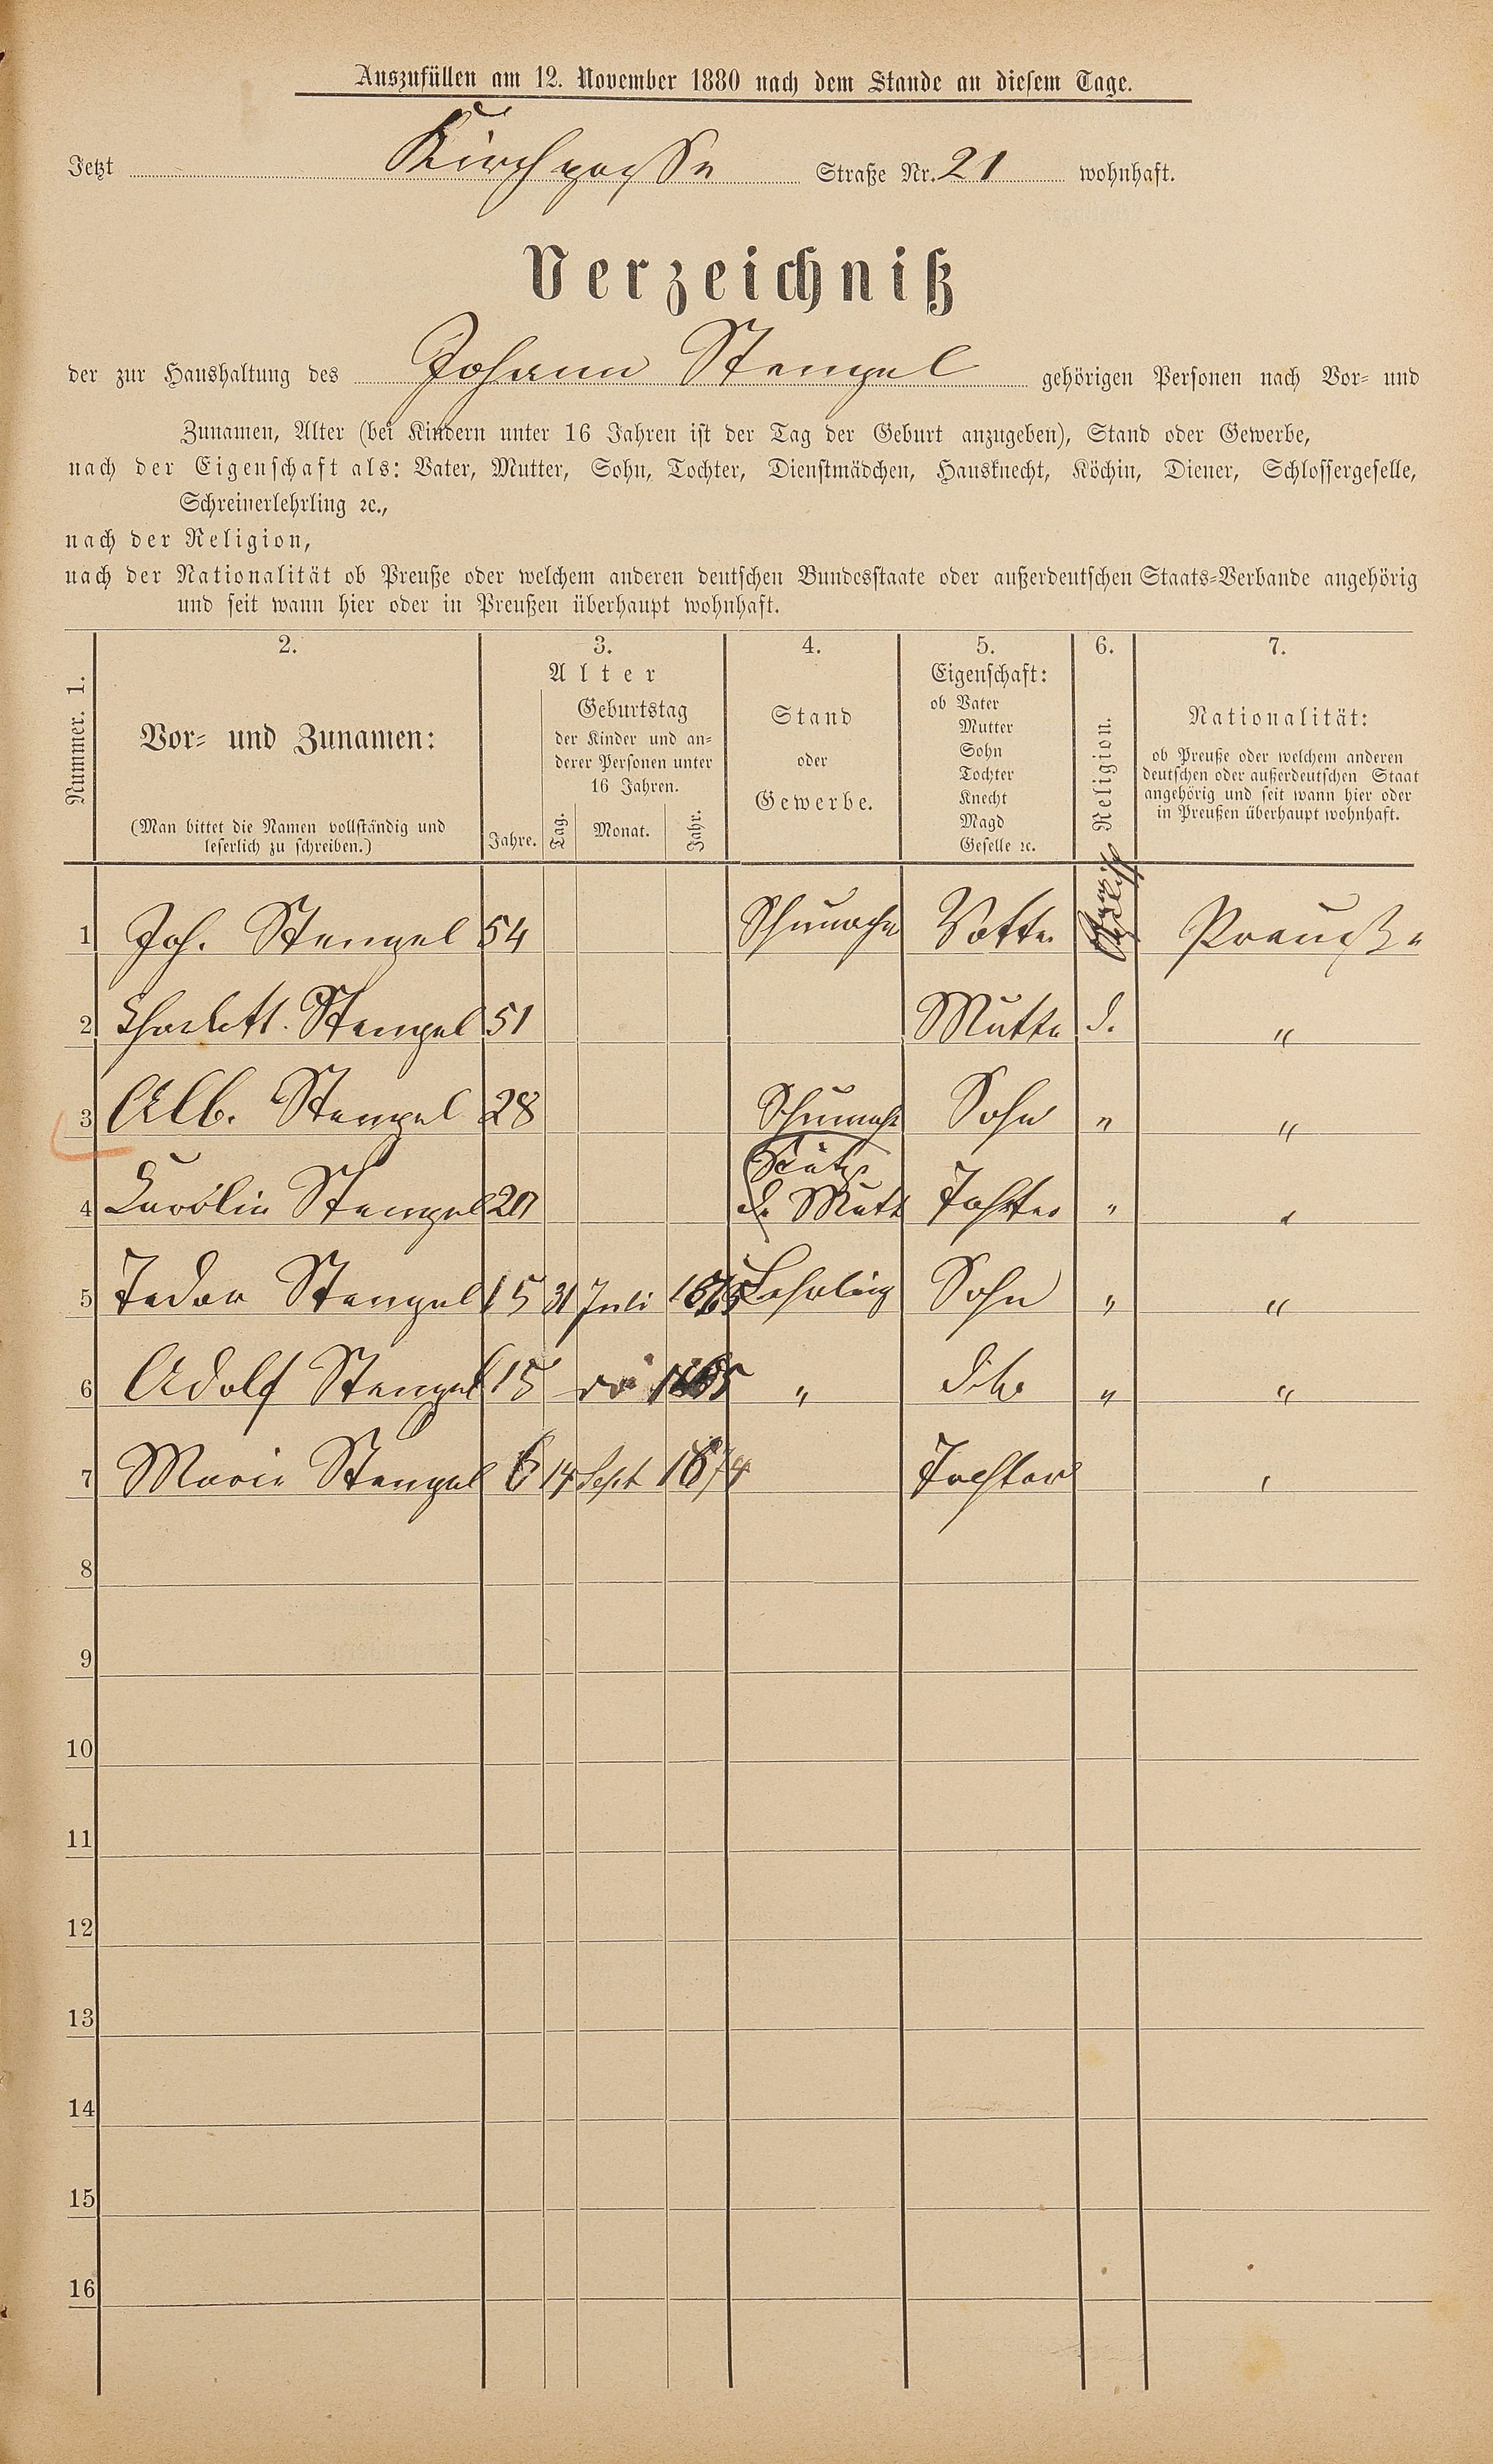 Auszufüllen am 12. November 1880 nach dem Stande an diesem Tage.
Jetzt Kirchgasse Straße Nr. 21 wohnhaft.
Verzeichniß
der zur Haushaltung des Johann Stengel gehörigen Personen nach Vor- und
Zunamen, Alter (bei Kindern unter 16 Jahren ist der Tag der Geburt anzugeben), Stand oder Gewerbe,
nach der Eigenschaft als: Vater, Mutter, Sohn, Tochter, Dienstmädchen, Hausknecht, Köchin, Diener, Schlossergeselle,
Schreinerlehrling ꝛc.,
nach der Religion,
nach der Nationalität ob Preuße oder welchem anderen deutschen Bundesstaate oder außerdeutschen Staats-Verbande angehörig
und seit wann hier oder in Preußen überhaupt wohnhaft.
Nummer. 1.
2.
Vor- und Zunamen:
(Man bittet die Namen vollständig und
leserlich zu schreiben.)
3.
Alter
Jahre.
Geburtstag
der Kinder und an-
derer Personen unter
16 Jahren.
Tag. Monat. Jahr.
4.
Stand
oder
Gewerbe.
5.
Eigenschaft:
ob Vater
Mutter
Sohn
Tochter
Knecht
Magd
Geselle ꝛc.
6.
Religion.
7.
Nationalität:
ob Preuße oder welchem anderen
deutschen oder außerdeutschen Staat
angehörig und seit wann hier oder
in Preußen überhaupt wohnhaft.
1 Joh. Stengel 54 Vatter Preuße
2 Charlott. Stengel 51 Mutter d. "
3 Alb. Stengel 28 Sohn " "
4 Karolin Stengel 20 Stütze d. Mutt Tochter " "
5 Tedor Stengel 15 31 Juli 1865 Lehrling Sohn " "
6 Adolf Stengel 15 1865 " dito " "
7 Marie Stengel 6 14 Sept 1874 Tochter "
8
9
10
11
12
13
14
15
16